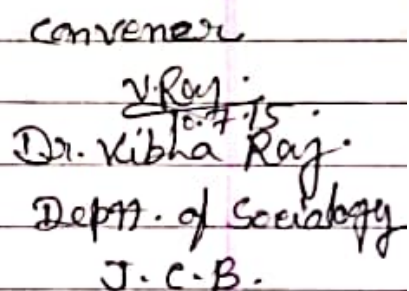 Convener
V. Raj.
10.7.15.
Dr. Vibha Raj.
Deptt. of Sociology
J.C.B.